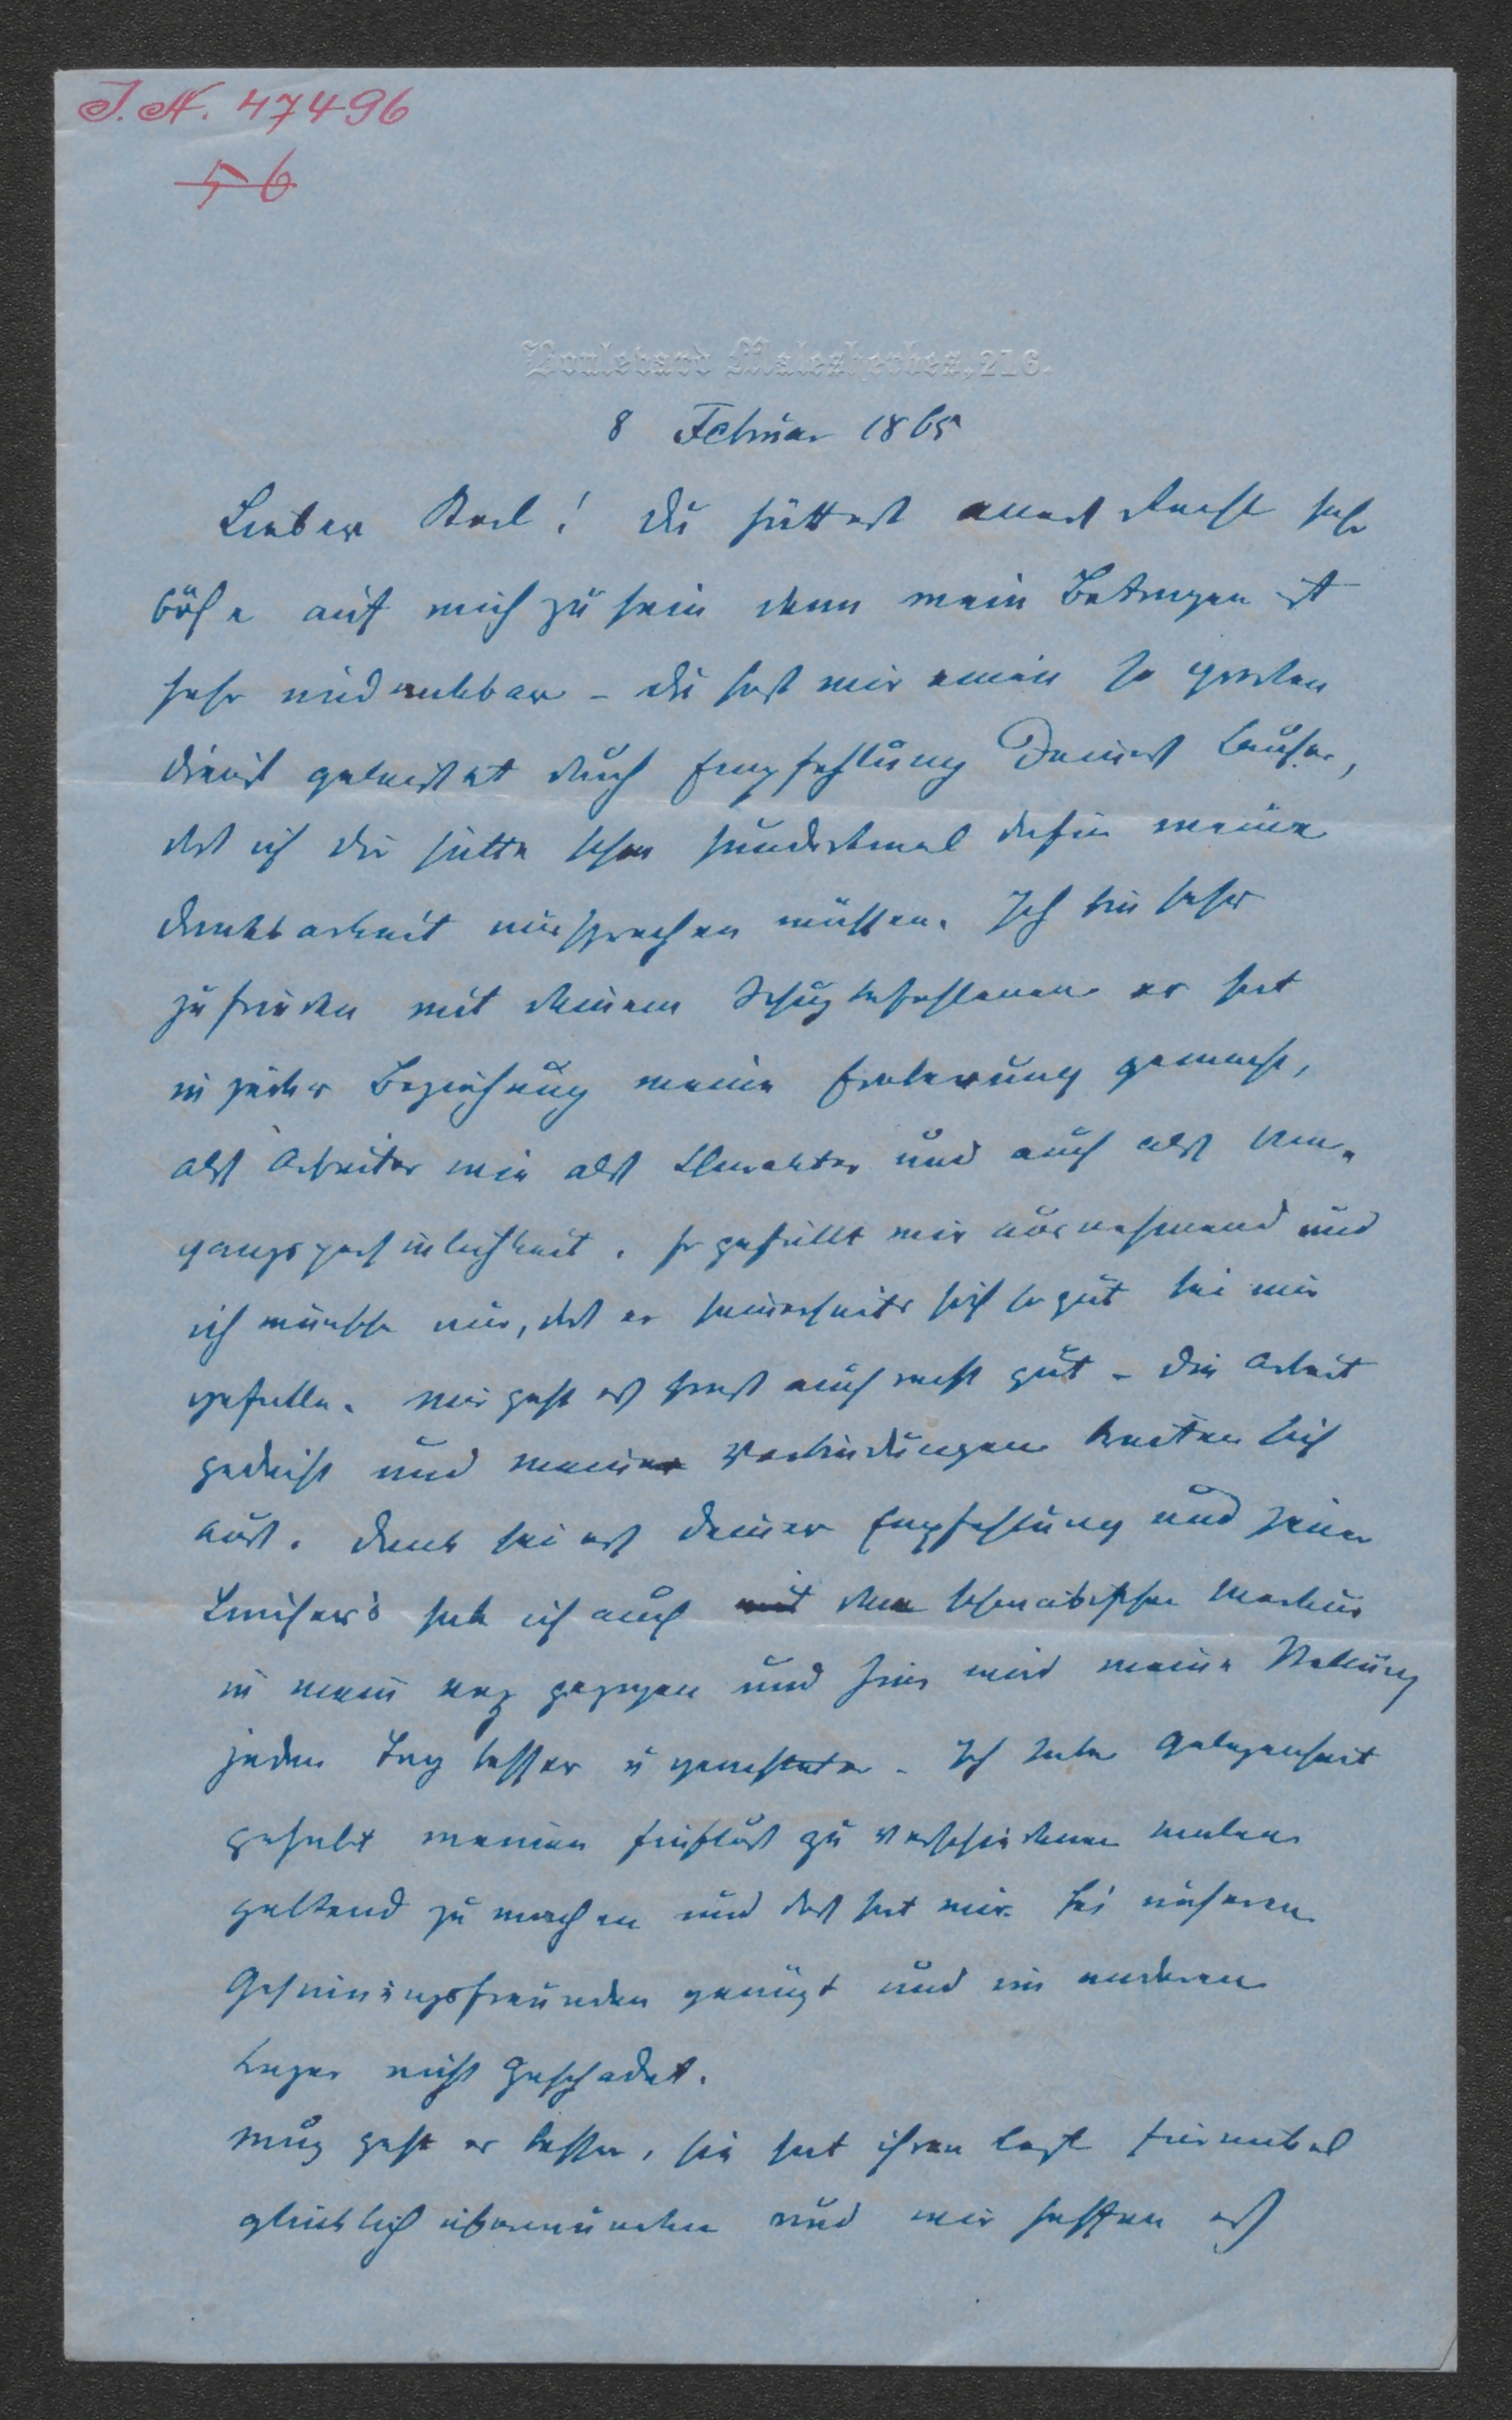 I. N. 47496
56
Boulevard Malesherbes, 216.
8 Februar 1865
Lieber Karl! Du hättest alles Recht sehr
böse auf mich zu sein denn mein Betragen ist
sehr undankbar – Du hast mir einen so großen
Dienst geleistet durch Empfehlung Deines Lauser,
daß ich Dir hätte schon hundertmal dafür meine
Dankbarkeit aussprechen müssen. Ich bin sehr
zufrieden mit deinem Schutzbefohlenen er hat
in jeder Beziehung meine Eroberung gemacht,
als Arbeiter wie als Charakter und auch als Um-
gangspersönlichkeit. Er gefällt mir ausnehmend und
ich wünschte nur, daß er seinerseits sich so gut bei mir
gefalle. Mir geht es sonst auch recht gut – die Arbeit
gedeiht und meine Verbindungen breiten sich
aus. Dank sei es deiner Empfehlung und jener
Lauser's hab ich auch den schwäbischen Merkur
in mein Netz gezogen und hier wird meine Stellung
jeden Tag besser u geachteter. Ich habe Gelegenheit
gehabt meinen Einfluß zu verschiedenen Malen
geltend zu machen und das hat mir bei unseren
Gesinnungsfreunden genützt und im anderen
Lager nicht geschadet.
geht es besser, sie hat ihren
glücklich überwunden und wir hoffen es